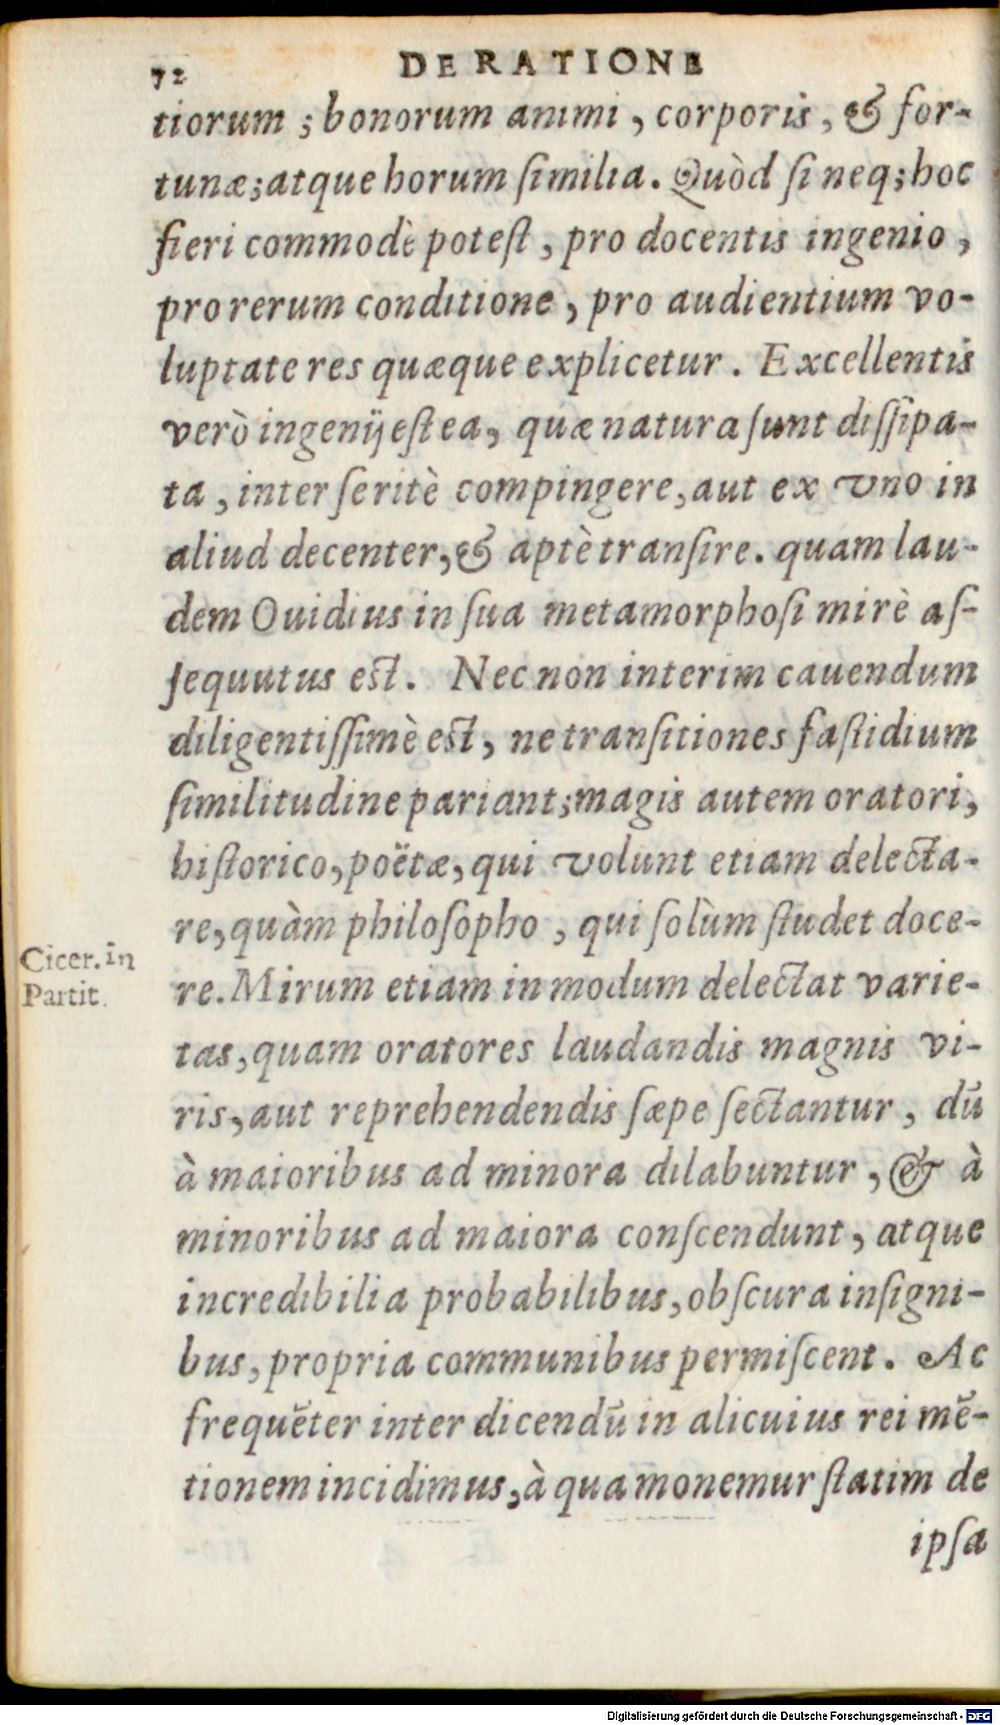 72
DE RATIONE
tiorum ; bonorum animi , corporis, & for-
tunæ; atque horum ſimilia. Quòd ſi neq; hoc
fieri commodè poteſt , pro docentis ingenio ,
pro rerum conditione , pro audientium vo-
luptate res quæque explicetur. Excellentis
verò ingenij eſt ea, quæ natura ſunt diſſipa-
ta , inter ſeritè compingere, aut ex vno in
aliud decenter, & aptè tranſire. quam lau-
dem Ouidius in ſua metamorphoſi mirè aſ-
ſequutus est. Nec non interim cauendum
diligentiſſimè est, ne tranſitiones faſtidium
ſimilitudine pariant; magis autem oratori,
hiſtorico, poëtæ, qui volunt etiam delecta-
re, quàm philoſopho , qui ſolùm ſtudet doce-
Cicer. in
Partit.
re. Mirum etiam in modum delectat varie-
tas, quam oratores laudandis magnis vi-
ris, aut reprehendendis ſæpe ſectantur, dū
à maioribus ad minora dilabuntur, & à
minoribus ad maiora conſcendunt, atque
incredibilia probabilibus, obſcura inſigni-
bus, propria communibus permiſcent. Ac
frequēter inter dicendū in alicuius rei mē-
tionem incidimus, à qua monemur ſtatim de
ipſa
Digitalisierung gefördert durch die Deutsche Forschungsgemeinschaft - DFG